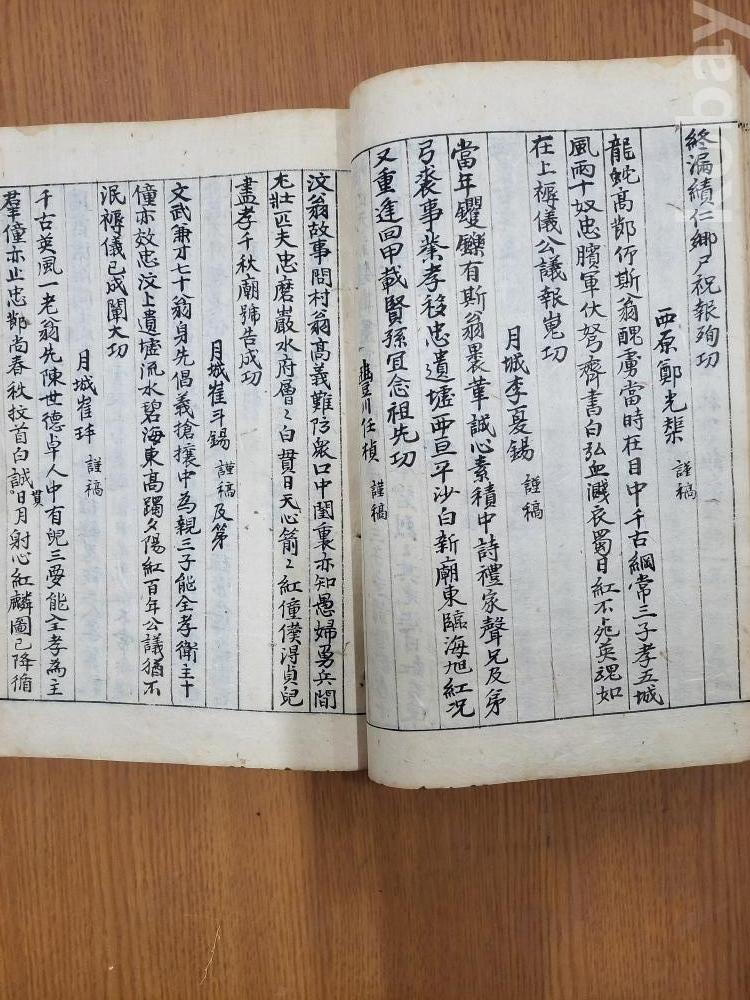 終漏績仁鄉尸祝報殉功
西原鄭光榘 謹稿
龍蛇高鄁伱斯翁醜虜當時在目中千古綱常三子孝五城
風雨十奴忠臏軍伏弩齊書白弘血濺衣蜀日紅不死英魂如
在上褥儀公議報嵬功
月城李夏錫 謹稿
當年钁鑠有斯翁褁革誠心素積中詩禮家聲兄及弟
弓裘事業孝移忠遺墟西亘平沙白新廟東臨海旭紅况
又重逢回甲載賢孫宜念祖先功
豊川任楨 謹稿
汶翁故事問村翁高義難防衆口中閨裏亦知愚婦勇兵間
尤壯匹夫忠磨巖水府層〻白貫日天心箭〻紅僮僕得貞兒
盡孝千秋廟號告成功
月城崔斗錫 謹稿及第
文武兼才七十翁身先倡義搶攘中為親三子能全孝衛主十
僮亦效忠汶上遺墟流水碧海東高躅夕陽紅百年公議猶不
泯褥儀已成闡大功
月城崔 謹稿
千古英風一老翁先陳世德卓人中有兒三愛能全孝為主
羣僮亦止忠鄁尚春秋抆首白誠貫日月射心紅麟圖已降循
ebay